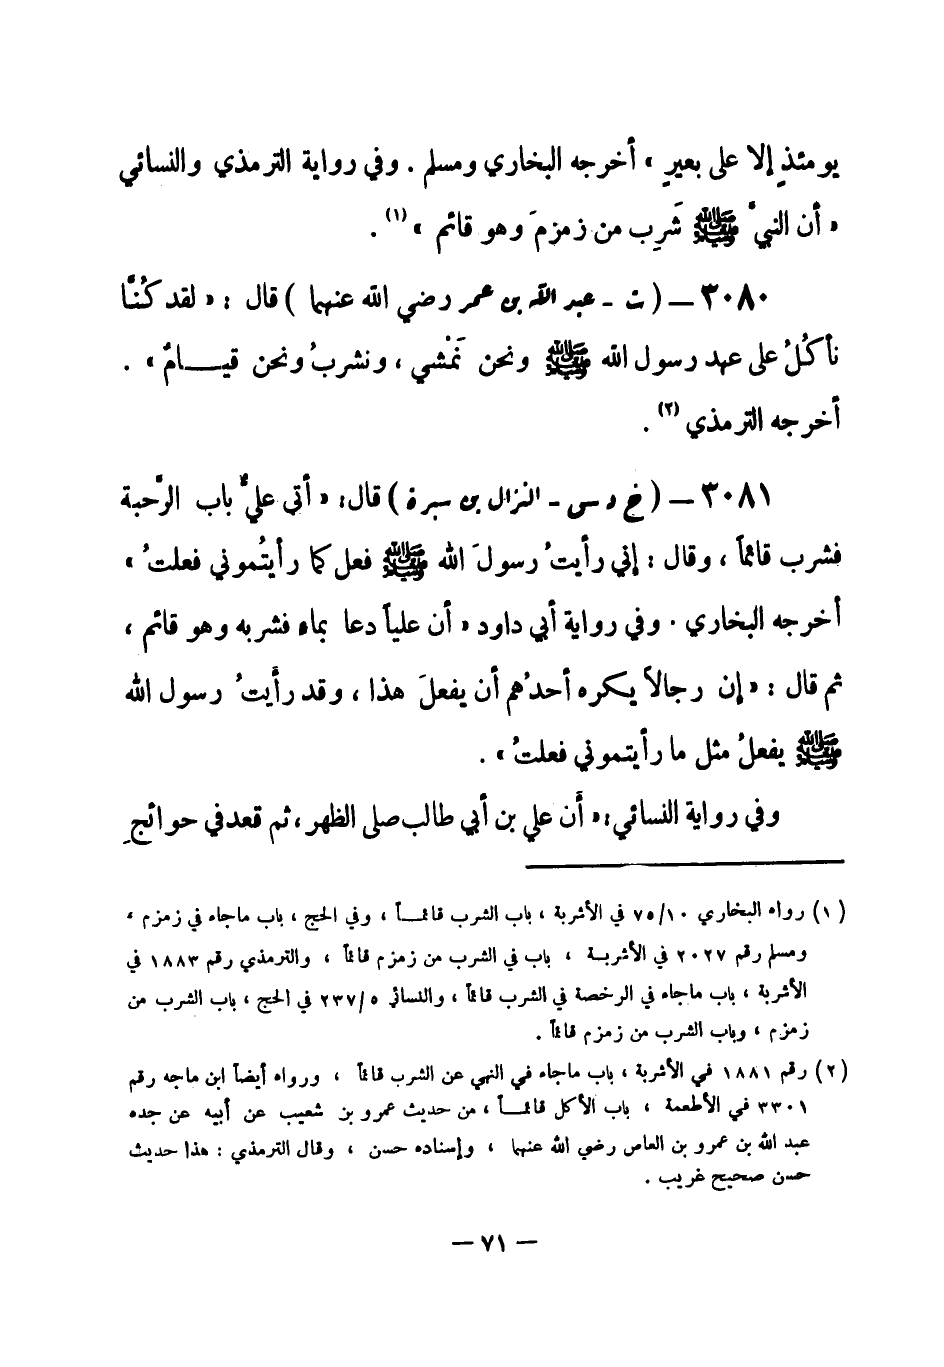 يومئذٍ إلا على بعيرٍ » أخرجه البخاري ومسلم . وفي رواية الترمذي والنسائي
« أن النبيَّ ﷺ شَرِب من زمزمَ وهو قائم » (١) .
٣٠٨٠ — ( ت - عبد الله بن عمر رضي الله عنهما ) قال : « لقد كُنَّا
نأكُلُ على عهد رسول الله ﷺ ونحن نَمْشي ، ونشربُ ونحن قيـــامٌ » .
أخرجه الترمذي (٢) .
٣٠٨١ — ( خ د س - النزال بن سبرة ) قال: « أتى عليٌّ باب الرَّحبة
فشرب قائماً ، وقال : إني رأيتُ رسولَ الله ﷺ فعل كما رأيتُموني فعلتُ »
أخرجه البخاري . وفي رواية أبي داود « أن علياً دعا بماء فشربه وهو قائم ،
ثم قال : « إن رجالاً يكره أحدُهم أن يفعلَ هذا ، وقد رأَيتُ رسول الله
ﷺ يفعلُ مثل ما رأيتموني فعلتُ » .
وفي رواية النسائي: « أَن علي بن أبي طالب صلى الظهر ، ثم قعد في حوائجِ
(١) رواه البخاري ١٠/‏٧٥ في الأشربة ، باب الشرب قائمـــاً ، وفي الحج ، باب ماجاء في زمزم ،
ومسلم رقم ٢٠٢٧ في الأشربــة ، باب في الشرب من زمزم قائماً ، والترمذي رقم ١٨٨٣ في
الأشربة ، باب ماجاء في الرخصة في الشرب قائماً ، والنسائي ٥/‏٢٣٧ في الحج ، باب الشرب من
زمزم ، وباب الشرب من زمزم قائماً .
(٢) رقم ١٨٨١ في الأشربة ، باب ماجاء في النهي عن الشرب قائماً ، ورواه أيضاً ابن ماجه رقم
٣٣٠١ في الأطعمة ، باب الأكل قائمـــاً ، من حديث عمرو بن شعيب عن أبيه عن جده
عبد الله بن عمرو بن العاص رضي الله عنهما ، وإسناده حسن ، وقال الترمذي : هذا حديث
حسن صحيح غريب .
— ٧١ —